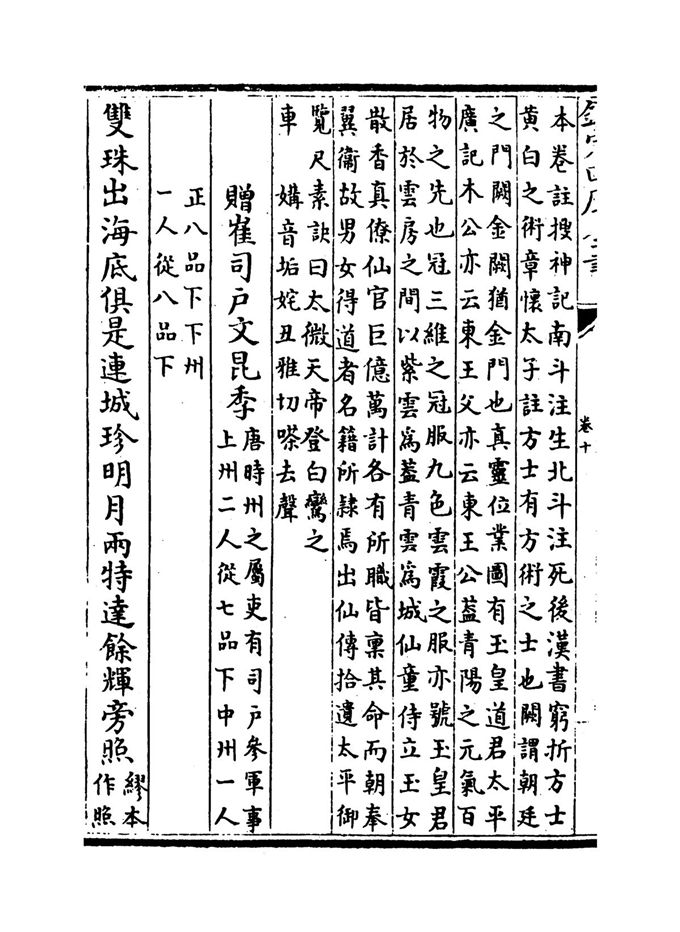 欽定四庫全書
卷十
本卷註搜神記南斗注生北斗注死後漢書窮折方士
黄白之術章懷太子註方士有方術之士也闕謂朝廷
之門闕金闕猶金門也真靈位業圖有玉皇道君太平
廣記木公亦云東王父亦云東王公葢青陽之元氣百
物之先也冠三維之冠服九色雲霞之服亦號玉皇君
居於雲房之間以紫雲爲葢青雲爲城仙童侍立玉女
散香真僚仙官巨億萬計各有所職皆稟其命而朝奉
翼衛故男女得道者名籍所隸焉出仙傳拾遺太平御
覽尺素訣曰太微天帝登白鸞之
車 媾音垢姹丑雅切嗏去聲
贈崔司户文昆季 唐時州之屬吏有司户參軍事
上州二人從七品下中州一人
正八品下下州
一人從八品下
雙珠出海底俱是連城珍明月兩特達餘輝旁照 繆本
作照